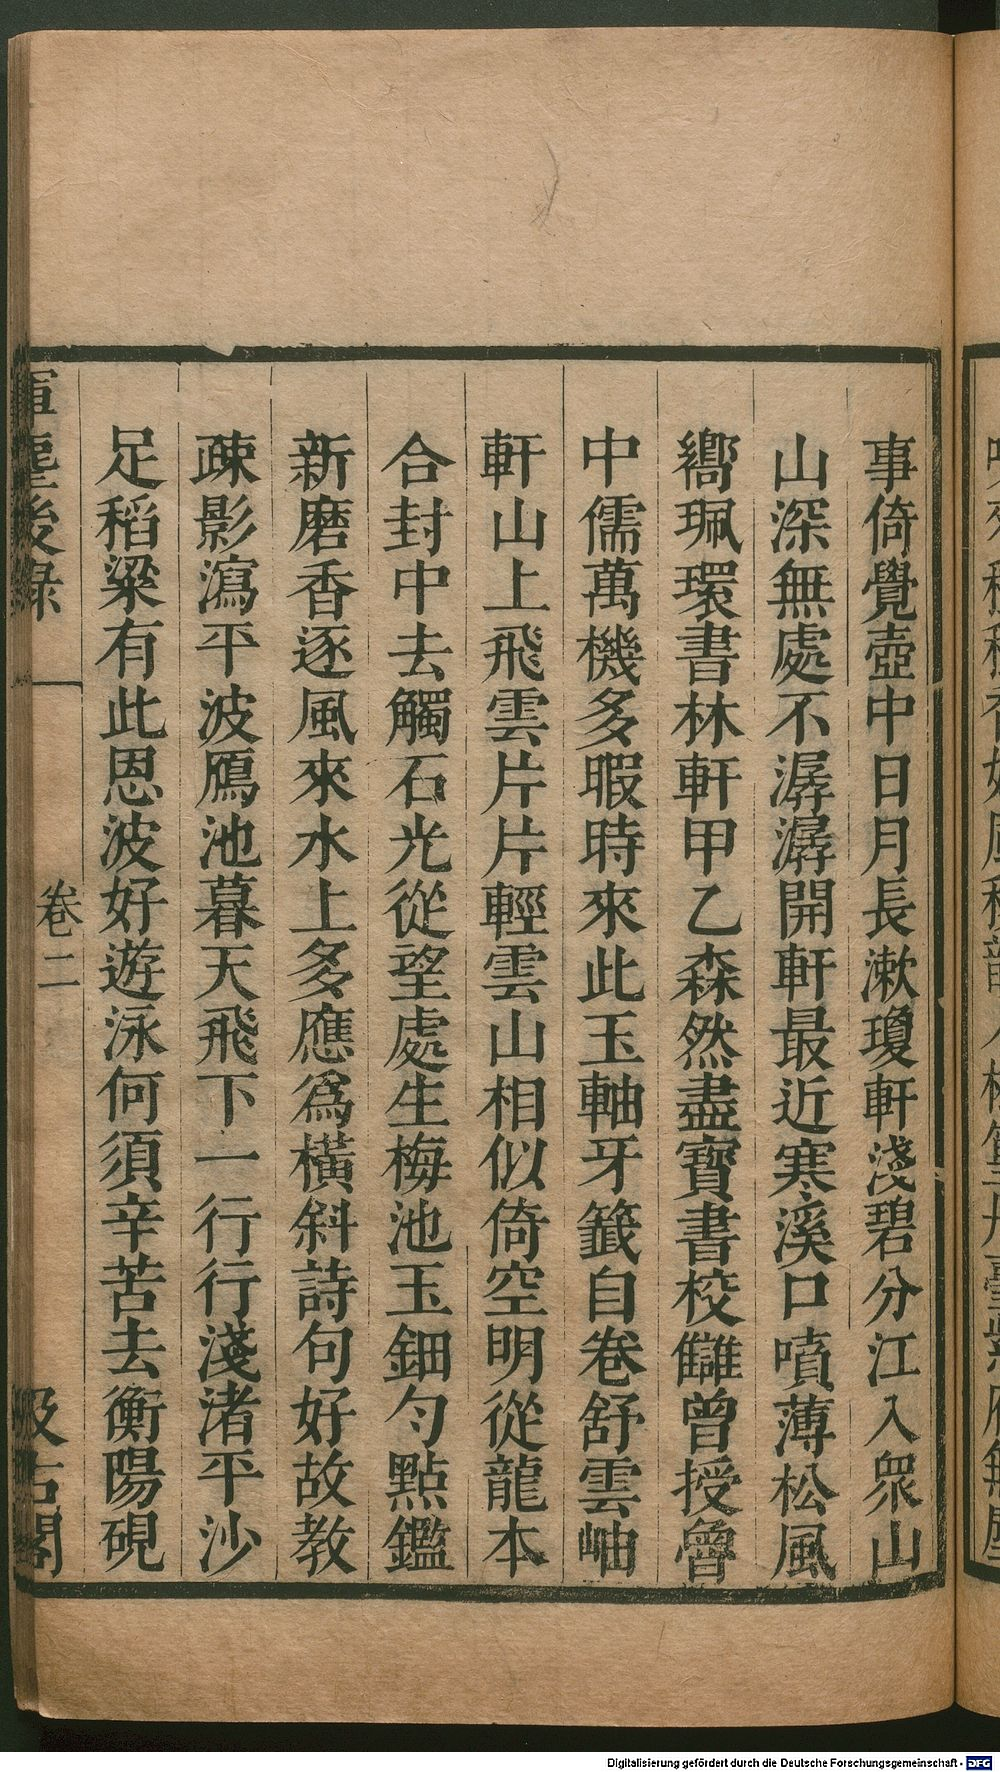 事倚覺壺中日月長漱瓊軒淺碧分江入衆山
山深無處不潺潺開軒最近寒溪口噴薄松風
嚮珮環書林軒甲乙森然盡寶書校讎曾授魯
中儒萬機多暇時來此玉軸牙籤自卷舒雲岫
軒山上飛雲片片輕雲山相似倚空明從龍本
合封中去觸石光從望處生梅池玉鈿勻點鑑
新磨香逐風來水上多應爲橫斜詩句好故教
疎影瀉平波鴈池暮天飛下一行行淺渚平沙
足稻粱有此恩波好遊泳何須辛苦去衡陽硯
後錄
卷二
汲古閣
Digitalisierung gefördert durch die Deutsche Forschungsgemeinschaft - DFG